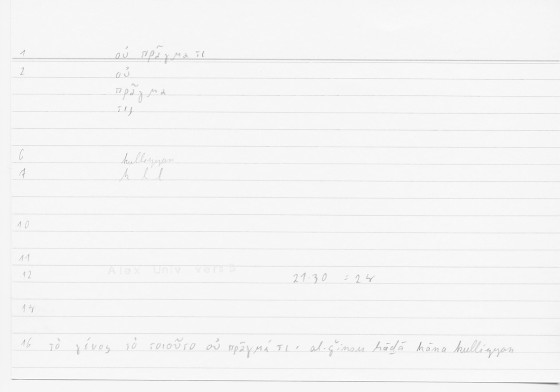 1 οὐ πρᾶγμά τι
2 οὐ
πρᾶγμα
τις
6 kulliyyan
7 k l l
10
11
12 21.30
14
16 τὸ γένος τὸ τοιοῦτο οὐ πρᾶγμά τι · al-ǧinsu hāḏā kāna kulliyyan